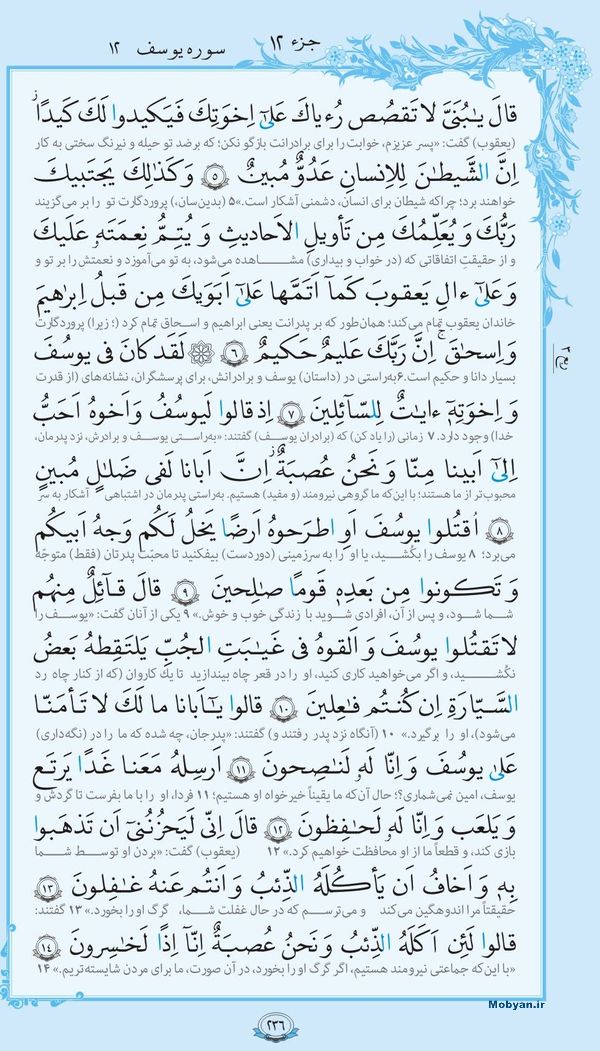 جزء ۱۲
سوره یوسف ۱۲
قالَ يـٰبُنَىَّ لا تَقصُص رُءياكَ عَلىٰٓ اِخوَتِكَ فَيَكيدوا لَكَ كَيدًا ۖ
(یعقوب) گفت: «پسر عزیزم، خوابت را برای برادرانت بازگو نکن؛ که برضد تو حیله و نیرنگ سختی به کار
اِنَّ الشَّيطـٰنَ لِلاِنسانِ عَدُوٌّ مُبينٌ ۵ وَ كَذٰلِكَ يَجتَبيكَ
خواهند برد؛ چراکه شیطان برای انسان، دشمنی آشکار است.»۵ (بدین‌سان،) پروردگارت تو را بر می‌گزیند
رَبُّكَ وَ يُعَلِّمُكَ مِن تَأويلِ الاَحاديثِ وَ يُتِمُّ نِعمَتَهٗ عَلَيكَ
و از حقیقتِ اتفاقاتی که (در خواب و بیداری) مشاهده می‌شود، به تو می‌آموزد و نعمتش را بر تو و
وَ عَلىٰٓ ءالِ يَعقوبَ كَمآ اَتَمَّها عَلىٰٓ اَبَوَيكَ مِن قَبلُ اِبرٰهيمَ
خاندان یعقوب تمام می‌کند؛ همان‌طور که بر پدرانت یعنی ابراهیم و اسحاق تمام کرد (؛ زیرا) پروردگارت
وَ اِسحـٰقَ ۚ اِنَّ رَبَّكَ عَليمٌ حَكيمٌ ۶ لَقَد كانَ فى يوسُفَ
بسیار دانا و حکیم است.۶به‌راستی در (داستان) یوسف و برادرانش، برای پرسشگران، نشانه‌های (از قدرت
وَ اِخوَتِهٖٓ ءايـٰتٌ لِلسّآئِلينَ ۷ اِذ قالوا لَيوسُفُ وَ اَخوهُ اَحَبُّ
خدا) وجود دارد. ۷ زمانی (را یاد کن) که (برادران یوسف) گفتند: «به‌راستی یوسف و برادرش، نزد پدرمان،
اِلىٰٓ اَبينا مِنّا وَ نَحنُ عُصبَةٌ ۚ اِنَّ اَبانا لَفى ضَلـٰلٍ مُبينٍ
محبوب‌تر از ما هستند؛ با این‌که ما گروهی نیرومند (و مفید) هستیم. به‌راستی پدرمان در اشتباهی آشکار به سر
۸ اُقتُلوا يوسُفَ اَوِ اطرَحوهُ اَرضًا يَخلُ لَكُم وَجهُ اَبيكُم
می‌برد؛ ۸ یوسف را بکُشید، یا او را به سرزمینی (دوردست) بیفکنید تا محبّت پدرتان (فقط) متوجّه
وَ تَكونوا مِن بَعدِهٖ قَومًا صـٰلِحينَ ۹ قالَ قآئِلٌ مِنهُم
شما شود، و پس از آن، افرادی شوید با زندگی خوب و خوش.» ۹ یکی از آنان گفت: «یوسف را
لا تَقتُلوا يوسُفَ وَ اَلقوهُ فى غَيـٰبَتِ الجُبِّ يَلتَقِطهُ بَعضُ
نکُشید، و اگر می‌خواهید کاری کنید، او را در قعر چاه بیندازید تا یک کاروان (که از کنار چاه رد
السَّيّارَةِ اِن كُنتُم فـٰعِلينَ ۱۰ قالوا يـٰٓاَبانا ما لَكَ لا تَأمَنّا
می‌شود)، او را برگیرد.» ۱۰ (آنگاه نزد پدر رفتند و) گفتند: «پدرجان، چه شده که ما را در (نگه‌داری)
عَلىٰ يوسُفَ وَ اِنّا لَهٗ لَنـٰصِحونَ ۱۱ اَرسِلهُ مَعَنا غَدًا يَرتَع
یوسف، امین نمی‌شماری؟؛ حال آن‌که ما یقیناً خیرخواه او هستیم؛ ۱۱ فردا، او را با ما بفرست تا گردش و
وَ يَلعَب وَ اِنّا لَهٗ لَحـٰفِظونَ ۱۲ قالَ اِنّى لَيَحزُنُنىٓ اَن تَذهَبوا
بازی کند، و قطعاً ما از او محافظت خواهیم کرد.» ۱۲ (یعقوب) گفت: «بردن او توسط شما
بِهٖ وَ اَخافُ اَن يَأكُلَهُ الذِّئبُ وَ اَنتُم عَنهُ غـٰفِلونَ ۱۳
حقیقتاً مرا اندوهگین می‌کند و می‌ترسم که در حال غفلت شما، گرگ او را بخورد.» ۱۳ گفتند:
قالوا لَئِن اَكَلَهُ الذِّئبُ وَ نَحنُ عُصبَةٌ اِنّآ اِذًا لَخـٰسِرونَ ۱۴
«با این‌که جماعتی نیرومند هستیم، اگر گرگ او را بخورد، در آن صورت، ما برای مردن شایسته‌تریم.» ۱۴
Mobyan.ir
۲۳۶